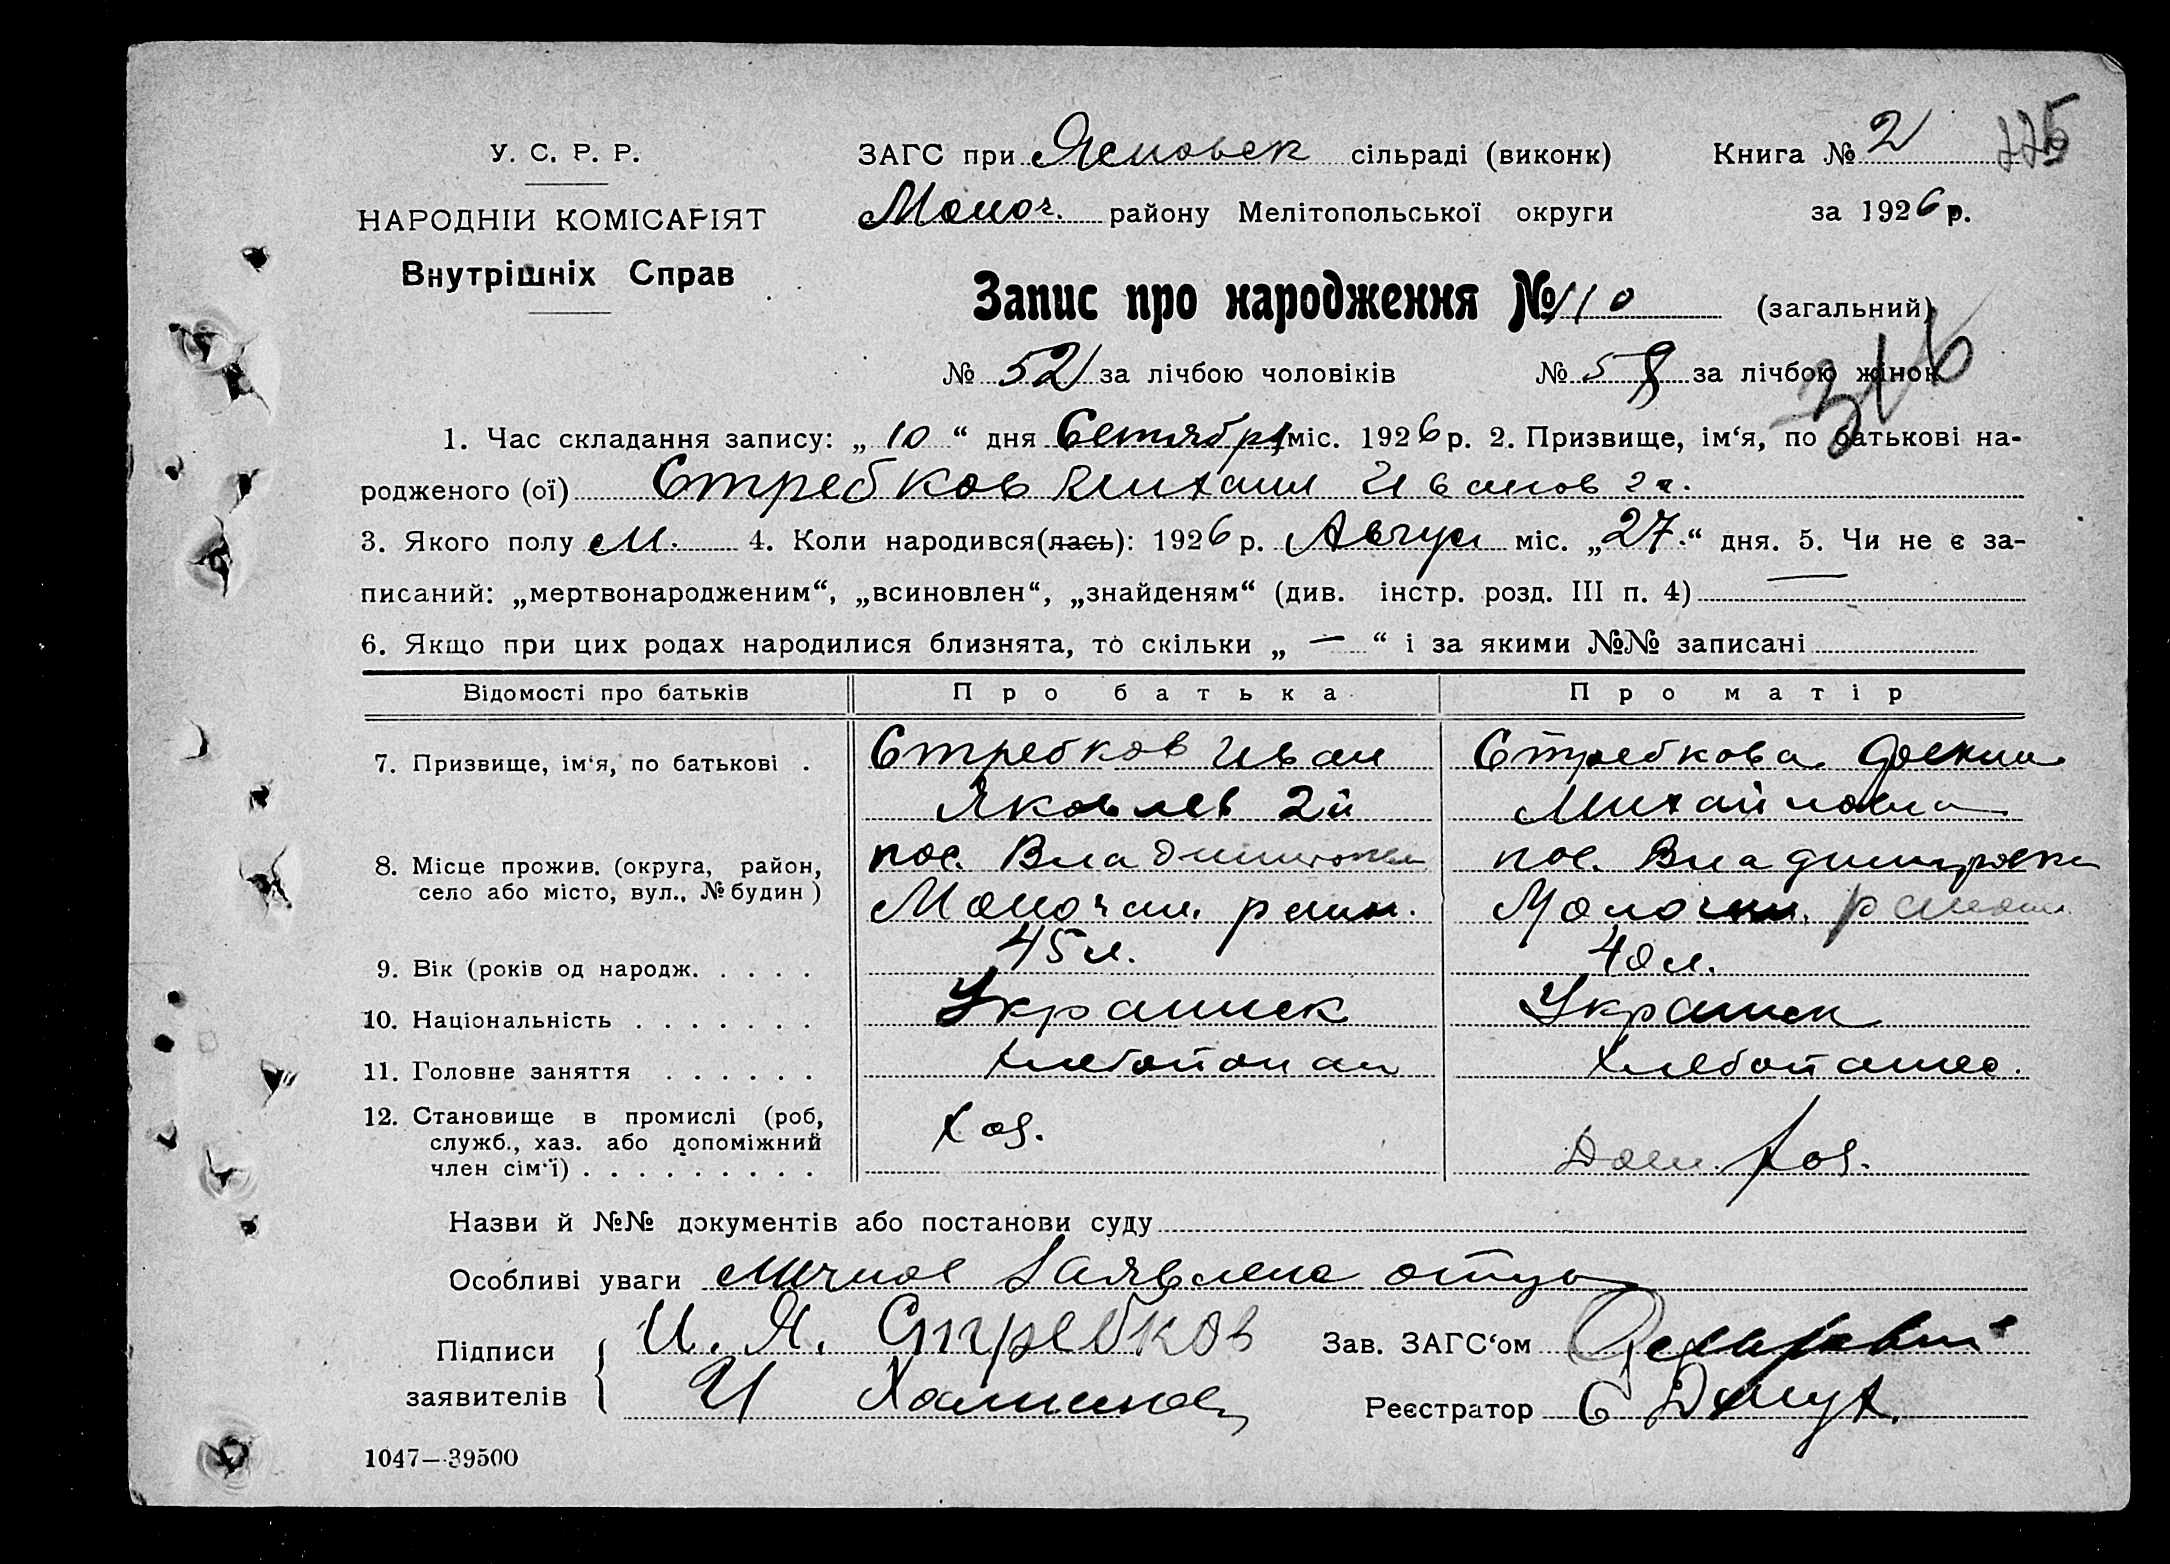 У. С. Р. Р.
НАРОДНІЙ КОМІСАРІЯТ
Внутрішніх Справ
ЗАГС при Ясновск сільраді (виконк) Книга № 2 225
Молоч. району Мелітопольської округи за 1926 р.
Запис про народження № 110 (загальний)
№ 52 за лічбою чоловіків № 58 за лічбою жінок
316
1. Час складання запису: „10“ дня Сентября міс. 1926 р. 2. Призвище, ім‘я, по батькові на-
родженого (ої) Стребков Михаил Иванов
3. Якого полу М. 4. Коли народився(лась): 1926 р. Август міс. „27.“ дня. 5. Чи не є за-
писаний: „мертвонародженим“, „всиновлен“, „знайденям“ (див. інстр. розд. III п. 4) —
6. Якщо при цих родах народилися близнята, то скільки „ — “ і за якими №№ записані
Відомості про батьків Про батька Про матір
7. Призвище, ім‘я, по батькові . Стребков Иван Стребкова
Яковлев 2й Михайловна
8. Місце прожив. (округа, район, пос. Владимировка пос. Владимировка
село або місто, вул., № будин ) Молочан. район. Молочан. района
9. Вік (років од народж. . . . . 45 л. 40 л.
10. Національність . . . . . . . Украинск Украинск
11. Головне заняття . . . . . . Хлебопашец Хлебопашес.
12. Становище в промислі (роб, Хоз. Дом. хоз.
служб., хаз. або допоміжний
член сім‘ї) . . . . . . . . .
Назви й №№ документів або постанови суду
Особливі уваги личное заявлене отца
Підписи И. Я. Стребков Зав. ЗАГС‘ом
заявителів И Реєстратор С
1047—39500